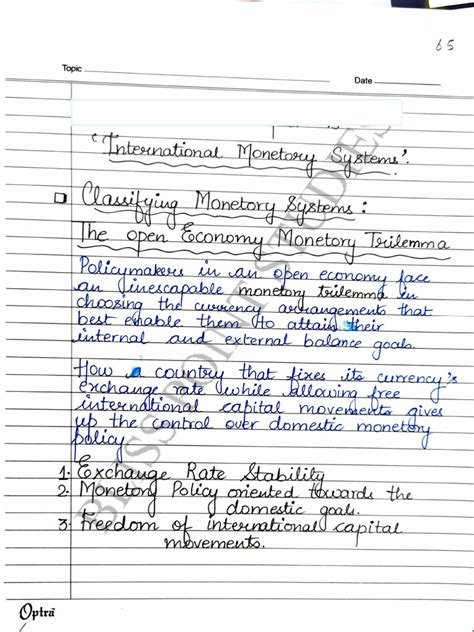 65
Topic
Date
"International Monetory Systems'.
Classifying Monetory Systems:
The open Economy Monetory Trilemma
Policymakers in an open economy face
an inescapable monetory trilemma in
choosing the currency arrangements that
best enable them to attain their
internal and external balance goals.
How a country that fixes its currency's
exchange rate while allowing free
international capital movements gives
up the control over domestic monetory
policy.
1. Exchange Rate Stability
2. Monetory Policy oriented towards the
domestic goals.
3. Freedom of international capital
movements.
BLISS POINT STUDIES
Optra